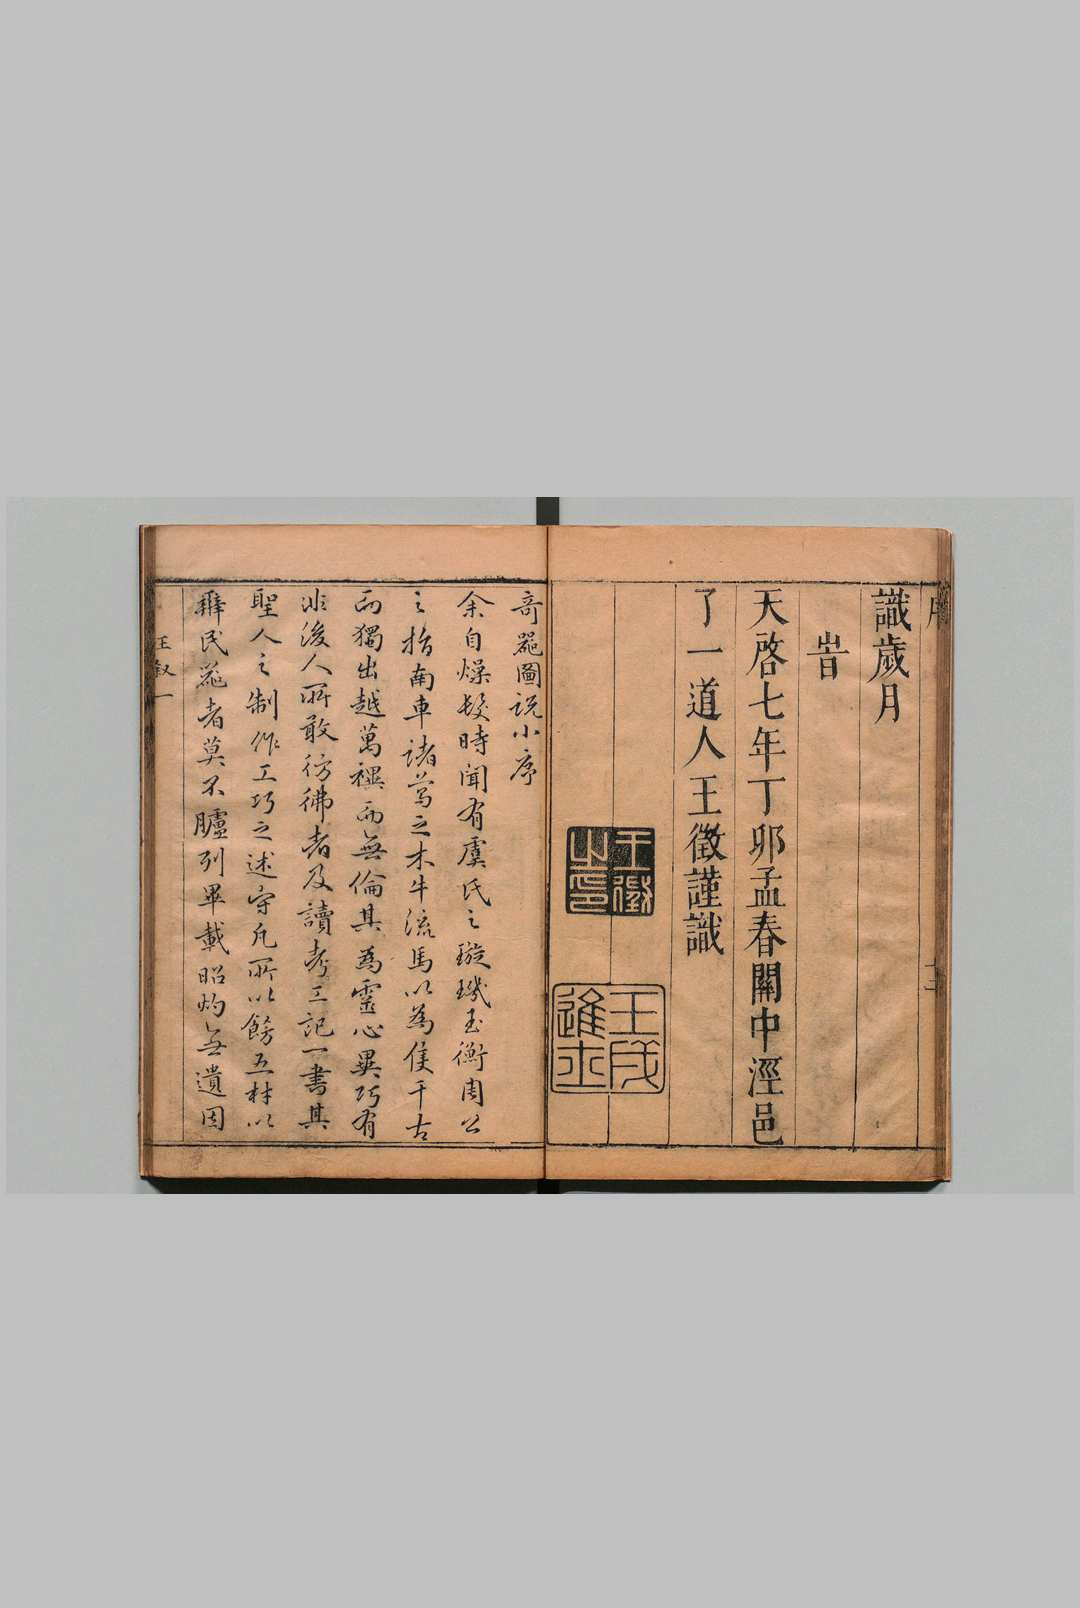 識歲月
旹
天啓七年丁卯孟春關中涇邑
了一道人王徵謹識
王徵之印
壬戌進士
奇器圖説小序
余自燥髮時聞有虞氏之璇璣玉衡周公
之指南車諸葛之木牛流馬以為侯千古
而獨出越萬禩而無倫其為靈心異巧有
非後人所敢彷彿者及讀考工記一書其
聖人之制作工巧之述守凡所以飭五材以
辨民器者莫不臚列畢載昭灼無遺因
王敘 一